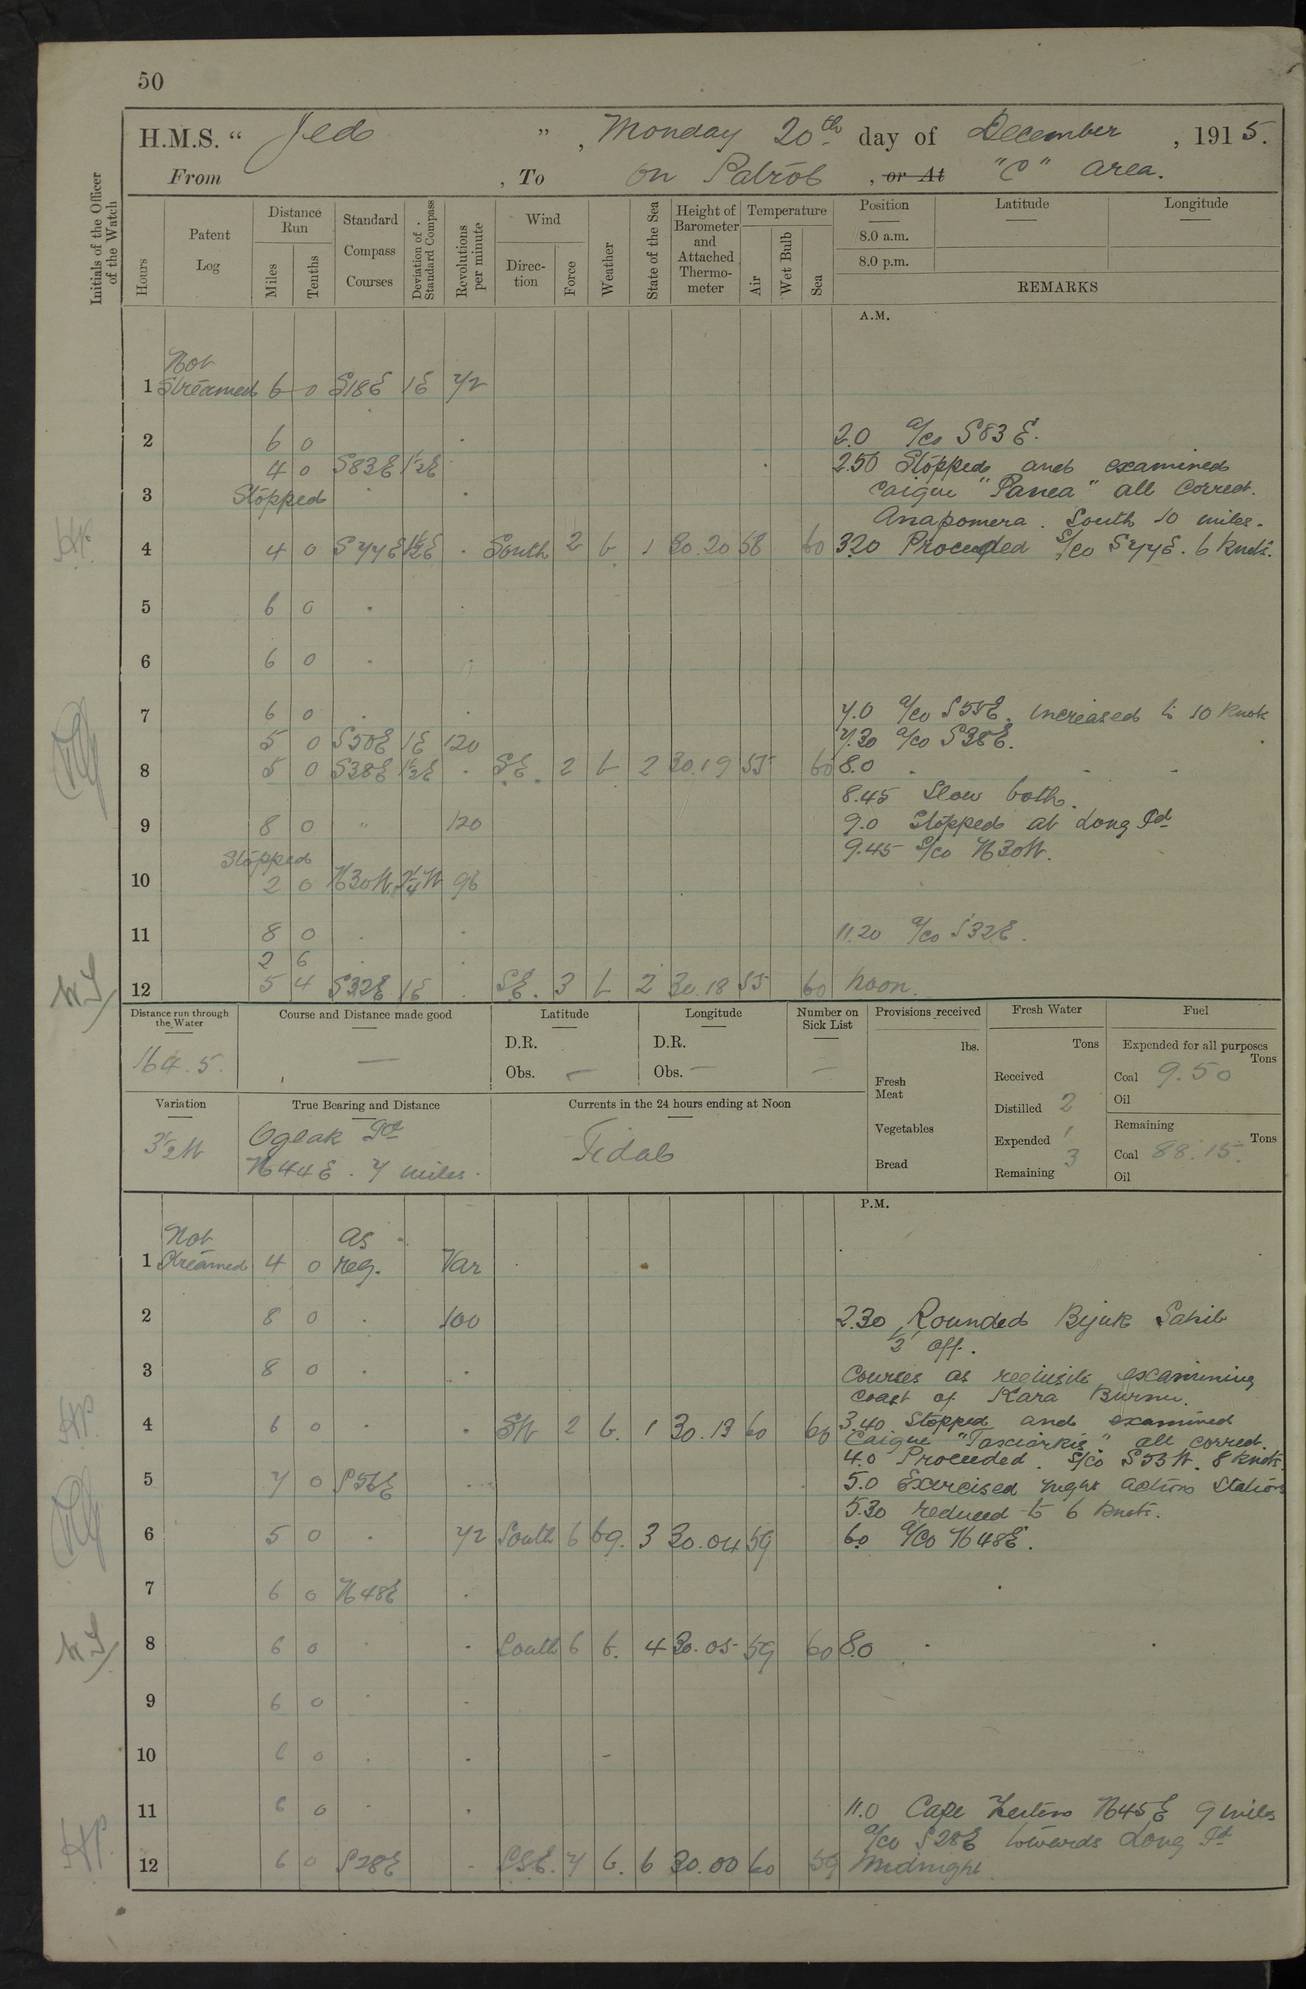 50
H.M.S. " Jed ", Monday 20th day of December, 1915.
From , To on Patrol, or At "C" area.
Initials of the Officer of the Watch
Hours
Patent Log
Distance Run
Miles
Tenths
Standard Compass Courses
Deviation of Standard Compass
Revolutions per minute
Wind
Direction
Force
Weather
State of the Sea
Height of Barometer and Attached Thermometer
Temperature
Air
Wet Bulb
Sea
Position
8.0 a.m.
8.0 p.m.
Latitude
Longitude
REMARKS
A.M.
Not
1 Streamed 6 0 S18E 1E 72
2 6 0 2.0 a/co S83E.
4 0 S83E 1½E 2.50 Stopped and examined
3 Stopped caique "Panea" all correct.
Anapomera. South 10 miles.
4 4 0 S77E 1½E South 2 b 1 30.20 58 60 3.20 Proceeded S/co S77E. 6 knots.
5 6 0
6 6 0
7 6 0 7.0 a/co S50E. Increased to 10 knots
5 0 S50E 1E 120 7.30 a/co S38E.
8 5 0 S38E 1½E SE. 2 b 2 30.19 55 60 8.0
8.45 Slow both.
9 8 0 " 120 9.0 Stopped at Long Id
Stopped 9.45 S/co N30W.
10 2 0 N30W ¼W 96
11 8 0 11.20 a/co S32E.
2 6
12 5 4 S32E 1E SE. 3 b 2 30.18 55 60 Noon.
Distance run through the Water
164.5.
Course and Distance made good
—
Latitude
D.R.
Obs. —
Longitude
D.R.
Obs. —
Number on Sick List
—
Provisions received
lbs.
Fresh Meat
Vegetables
Bread
Fresh Water
Tons
Received
Distilled 2
Expended 1
Remaining 3
Fuel
Expended for all purposes
Tons
Coal 9.50
Oil
Remaining
Tons
Coal 88.15.
Oil
Variation
3½W
True Bearing and Distance
Oglak Pt
N44E. 7 miles.
Currents in the 24 hours ending at Noon
Tidal
P.M.
Not as
1 Streamed 4 0 req. Var
2 8 0 100 2.30 Rounded Bijuk Sahib
½' off.
3 8 0 Courses as requisite examining
coast of Kara Burnu.
4 6 0 SW 2 b. 1 30.13 60 60 3.40 Stopped and examined
Caique "Taxiarkis" all correct.
4.0 Proceeded. S/co S53W. 8 knots.
5 7 0 S56E 5.0 Exercised night action Stations
5.30 reduced to 6 knots.
6 5 0 72 South 6 bg. 3 30.04 59 6.0 a/co N48E.
7 6 0 N48E
8 6 0 South 6 b. 4 30.05 59 60 8.0
9 6 0
10 6 0
11 6 0 11.0 Cape N45E 9 miles
a/co S28E towards Long Id
12 6 0 S28E SSE. 7 b. 6 30.00 60 59 Midnight